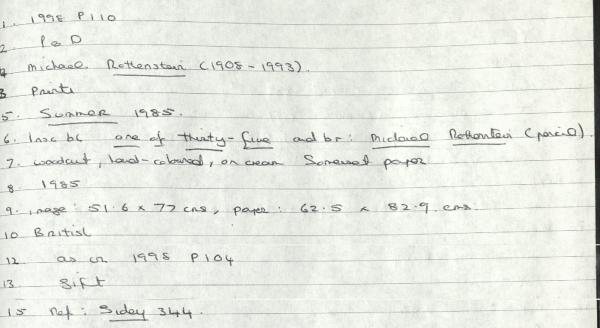 1. 1998 P110
2 P & D
4 Michael Rothenstein (1908-1993).
3 Prints
5. Summer 1985.
6. Insc bl one of thirty-five and br: Michael Rothenstein (pencil).
7. woodcut, hand-coloured, on cream Somerset paper
8 1985
9. image: 51.6 x 77 cms, paper: 62.5 x 82.9 cms.
10 British
12 as on 1998 P104
13 Gift
15 Ref: Sidey 344.